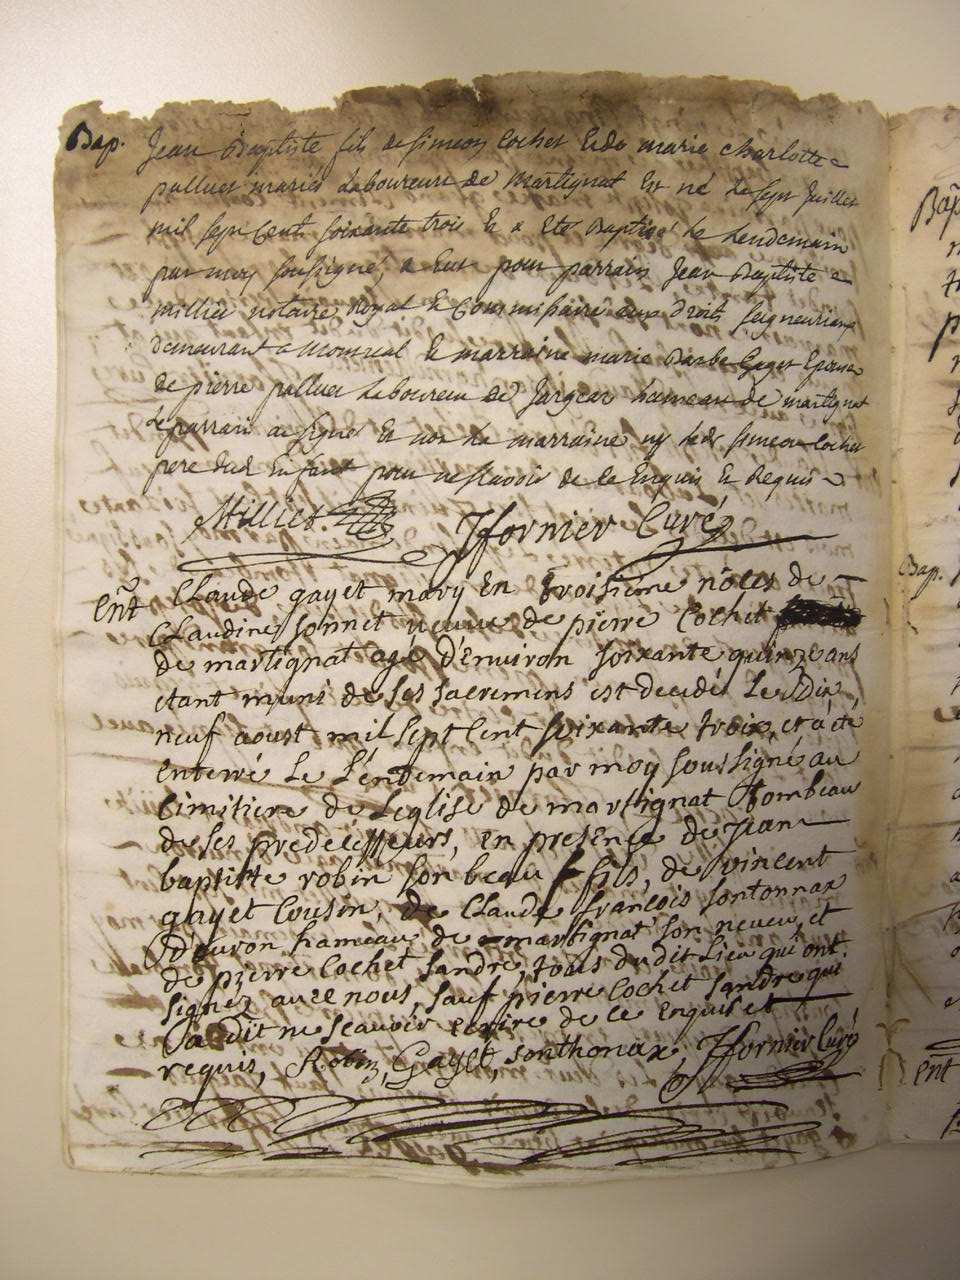 Bap. Jean Baptiste fils de Simeon Cochet et de marie charlotte
palluet mariés Laboureurs de Martignat Est né Le sept Juillet
mil sept Cent soixante trois Et a Eté Baptisé Le Lendemain
par moy soussigné, a Eut pour parrain Jean Baptiste
milliet notaire Royal Et Commissaire aux Droits seigneuriaux
demeurant a Montreal Et marraine marie Barbe Gaget Epouse
de pierre palluet Laboureur de Jargeat hameau de martignat
Le parrain a signé Et non La marraine ny Led. simeon Cochet
pere dud. Enfant pour ne sçavoir de ce Enquis Et Requis
Milliet. JFornier Curé
Ent Claude gayet mary En troisieme nôces de
Claudine sonnet veuve de pierre Cochet
de martignat agé d'Environ soixante quinze ans
étant muni de ses sacremens est decedé Le Dix
neuf aoust mil sept Cent soixante troix, et à été
enterré Le L'endemain par moy soussigné au
Cimitiere de Leglise de martignat tombeau
de ses predecesseurs, en presence de Jean
baptiste robin son beau fils, de vincent
gayet Cousin, de Claude françois sontonnax
d'evron hameau de martignat son neveu, et
de pierre Cochet Sandre, tous dudit Lieu qui ont
signez avec nous, sauf pierre Cochet sandre qui
a dit ne sçeavoir ecrire de ce enquis et
requis, Robin, Gayet, sonthonax, JFornier Curé
Bap
Bap.
Ent